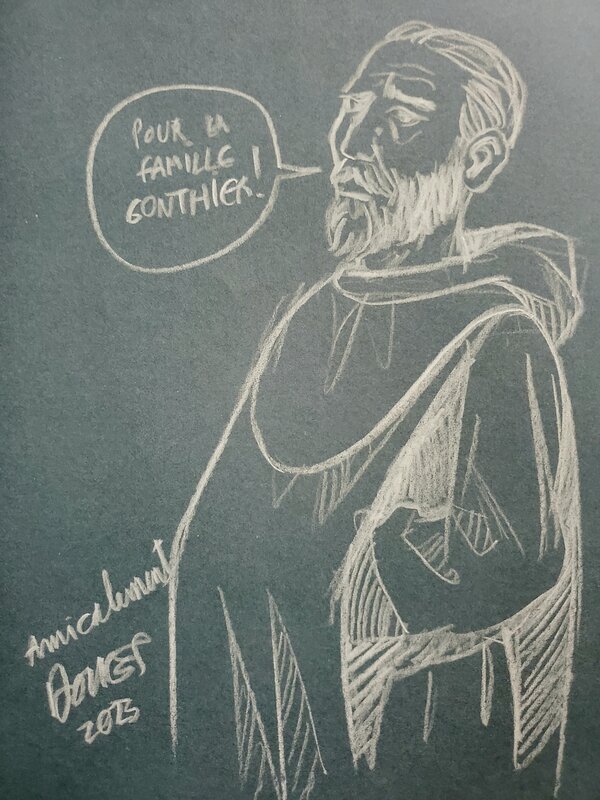 POUR LA
FAMILLE
GONTHIER!
Amicalement
2023